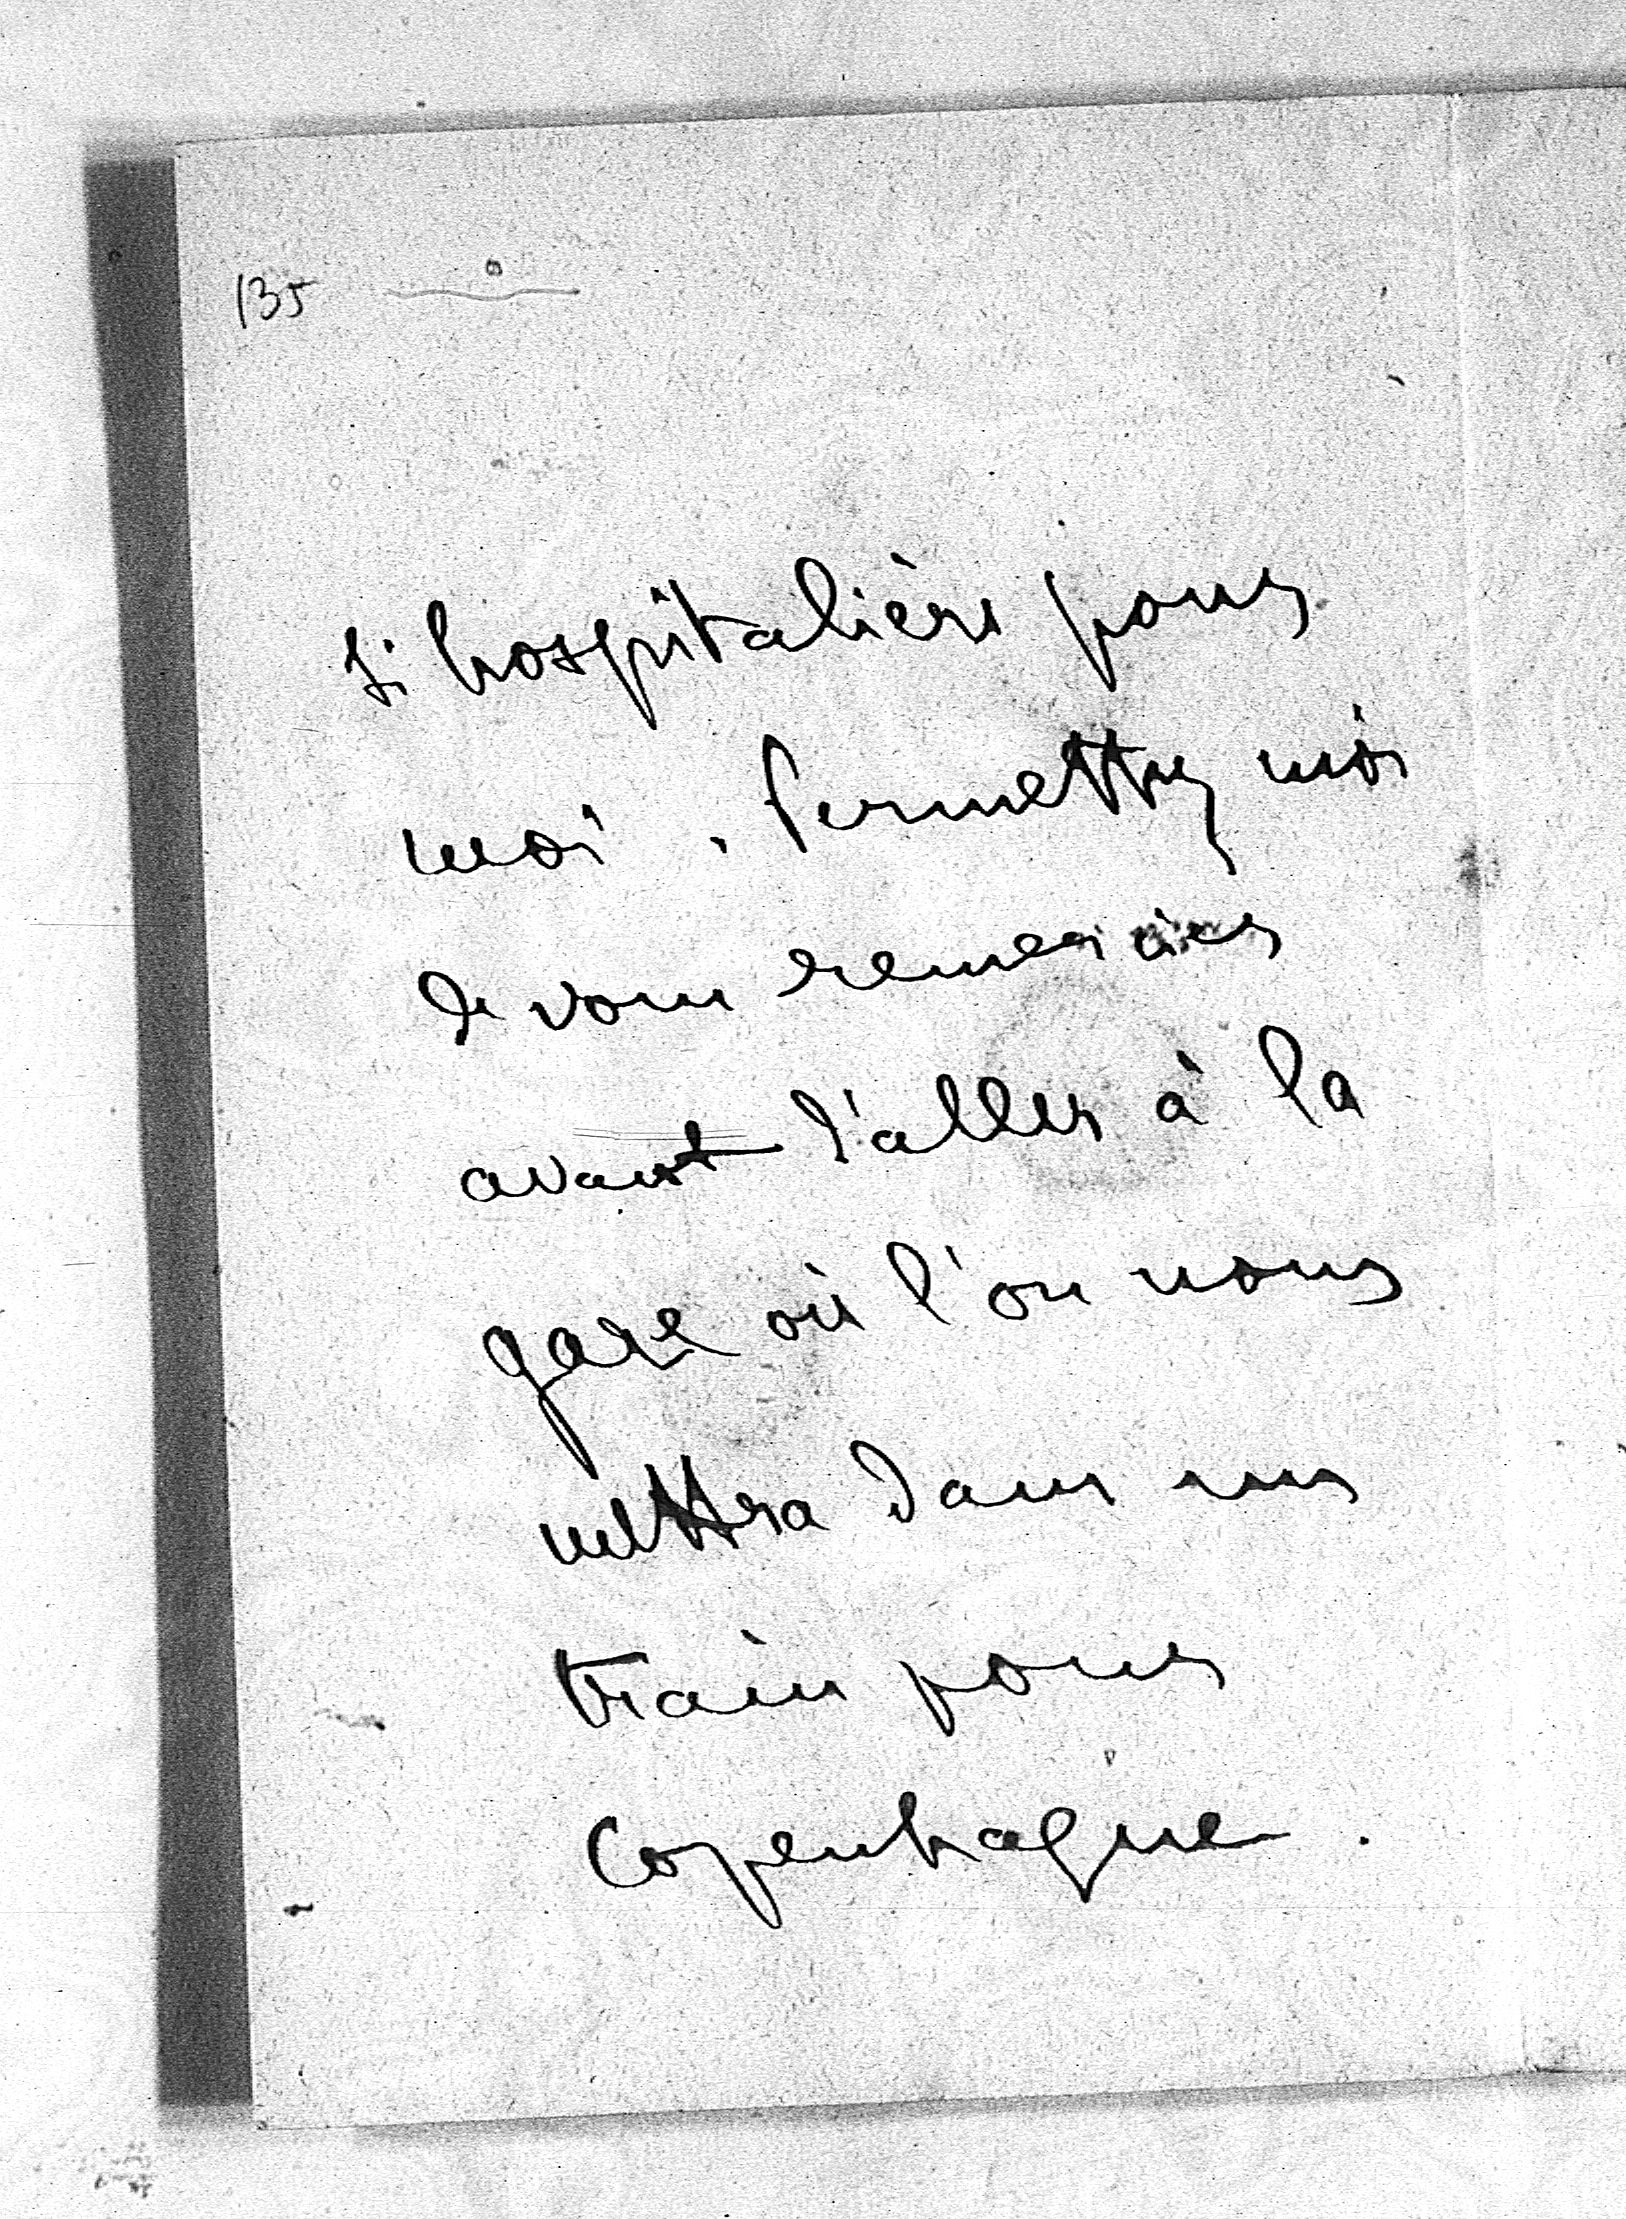 135
si hospitalière pour
moi. Permettez moi
de vous remercier
avant d'aller à la
gare où l'on nous
mettra dans un
train pour
Copenhague.